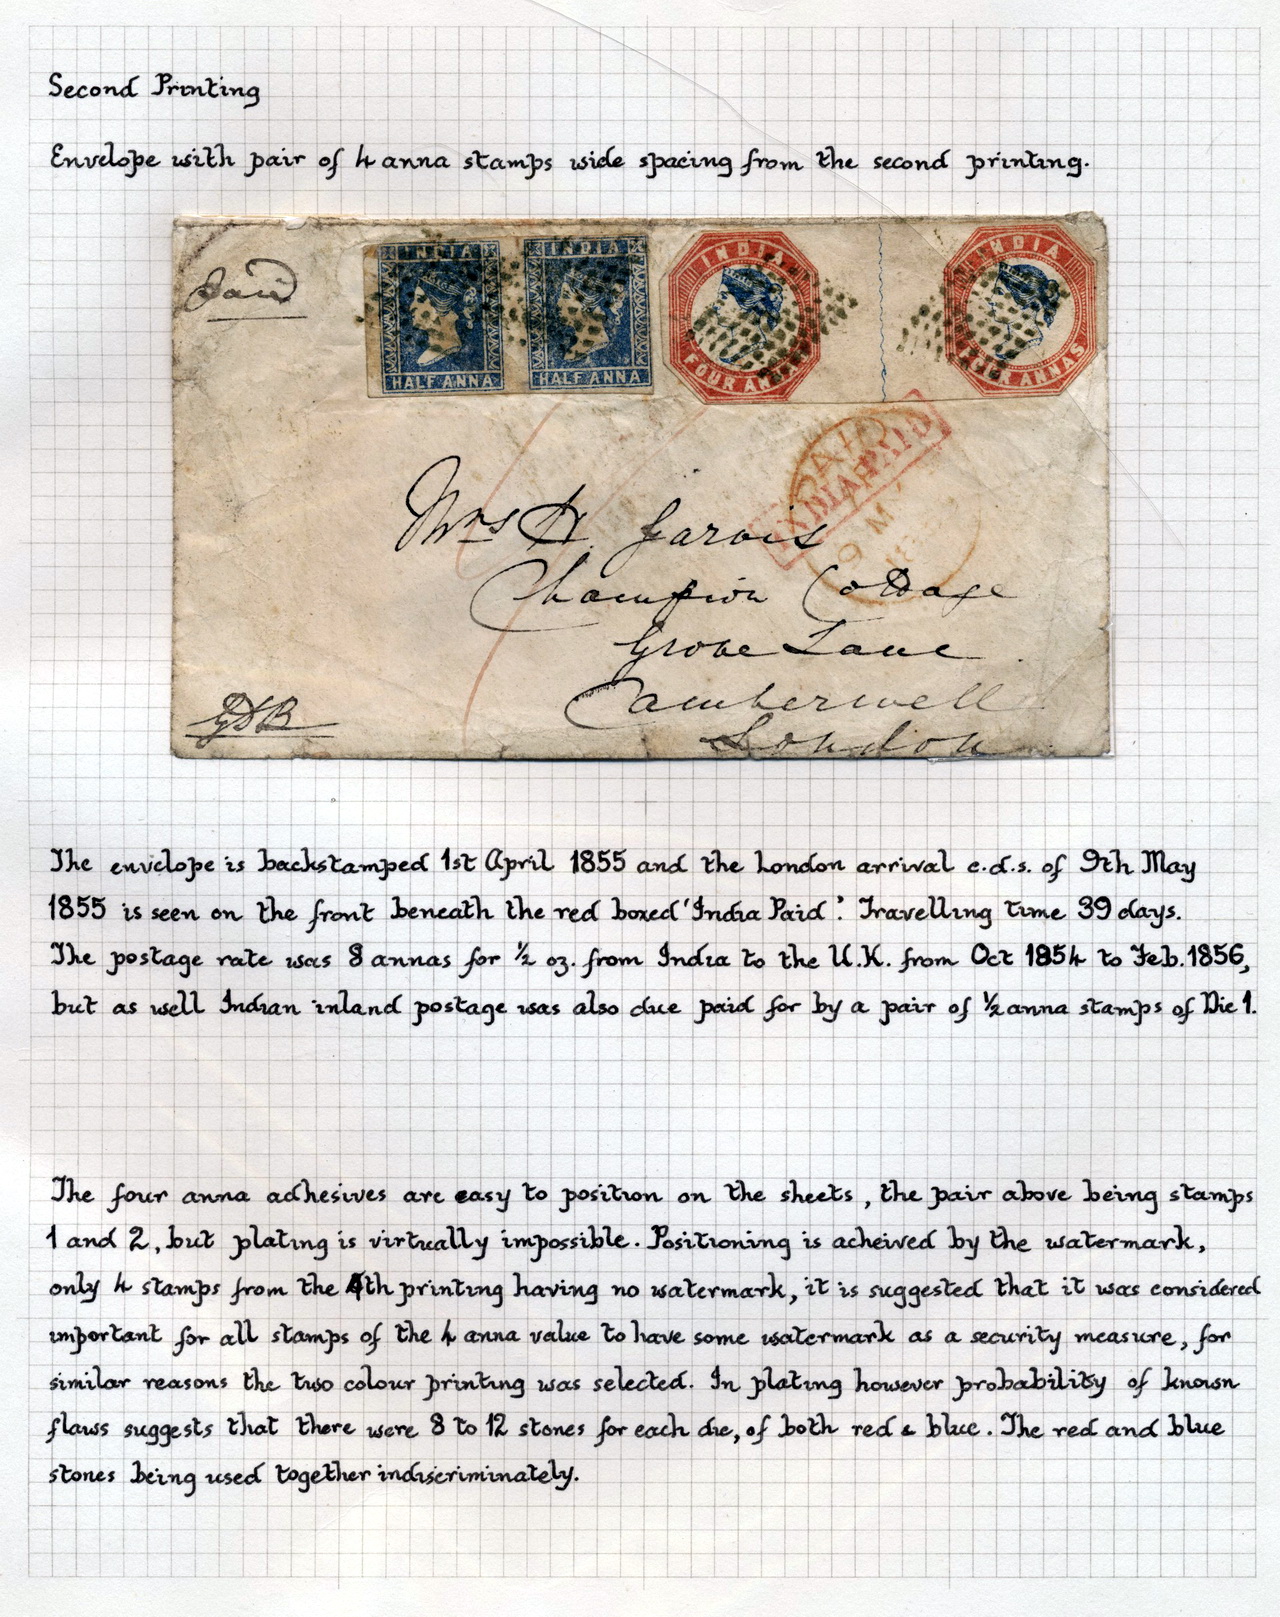 Second Printing
Envelope with pair of 4 anna stamps wide spacing from the second printing.
Paid
INDIA
INDIA
INDIA
INDIA
HALF ANNA
HALF ANNA
FOUR ANNAS
FOUR ANNAS
PAID
INDIA PAID
9 M
Mrs H. Jarvis
Champion Cottage
Grove Lane
Camberwell
London
The envelope is backstamped 1st April 1855 and the London arrival c.d.s. of 9th May
1855 is seen on the front beneath the red boxed 'India Paid'. Travelling time 39 days.
The postage rate was 8 annas for ½ oz. from India to the U.K. from Oct 1854 to Feb. 1856,
but as well Indian inland postage was also due paid for by a pair of ½ anna stamps of Die 1.
The four anna adhesives are easy to position on the sheets, the pair above being stamps
1 and 2, but plating is virtually impossible. Positioning is acheived by the watermark,
only 4 stamps from the 4th printing having no watermark, it is suggested that it was considered
important for all stamps of the 4 anna value to have some watermark as a security measure, for
similar reasons the two colour printing was selected. In plating however probability of known
flaws suggests that there were 8 to 12 stones for each die, of both red & blue. The red and blue
stones being used together indiscriminately.